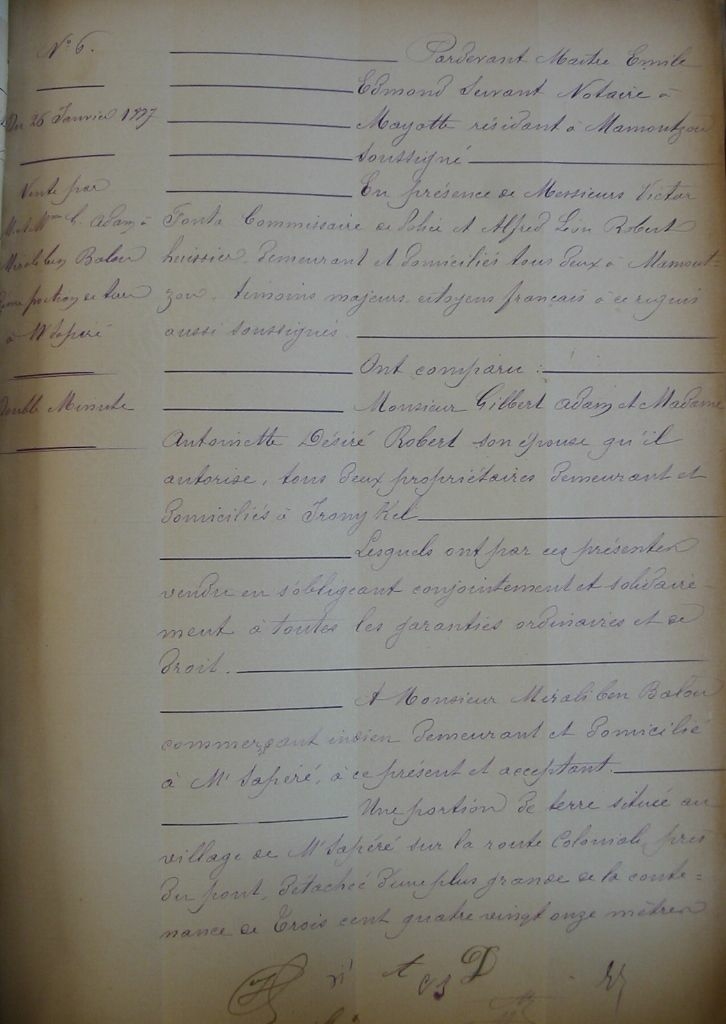 N° 6.
Du 26 Janvier 1897
Vente par
M. et Mme G. Adam à
Mirali ben Balou
d'une portion de terre
à M'Sapéré
Double Minute
Pardevant Maître Emile
Edmond Servant Notaire à
Mayotte résidant à Mamoutzou
soussigné
En présence de Messieurs Victor
Fonta Commissaire de Police et Alfred Léon Robert
huissier demeurant et domiciliés tous deux à Mamout-
zou, témoins majeurs citoyens français à ce requis
aussi soussignés.
Ont comparu :
Monsieur Gilbert Adam et Madame
Antoinette Désiré Robert son épouse qu'il
autorise, tous deux propriétaires demeurant et
domiciliés à Irony Kel
Lesquels ont par ces présentes
vendu en s'obligeant conjointement et solidaire-
ment à toutes les garanties ordinaires et de
droit.
A Monsieur Mirali ben Balou
commerçant indien demeurant et domicilié
à M'Sapéré, à ce présent et acceptant.
Une portion de terre située au
village de M'Sapéré sur la route Coloniale près
du pont, détachée d'une plus grande de la conte-
nance de Trois cent quatre vingt onze mètres